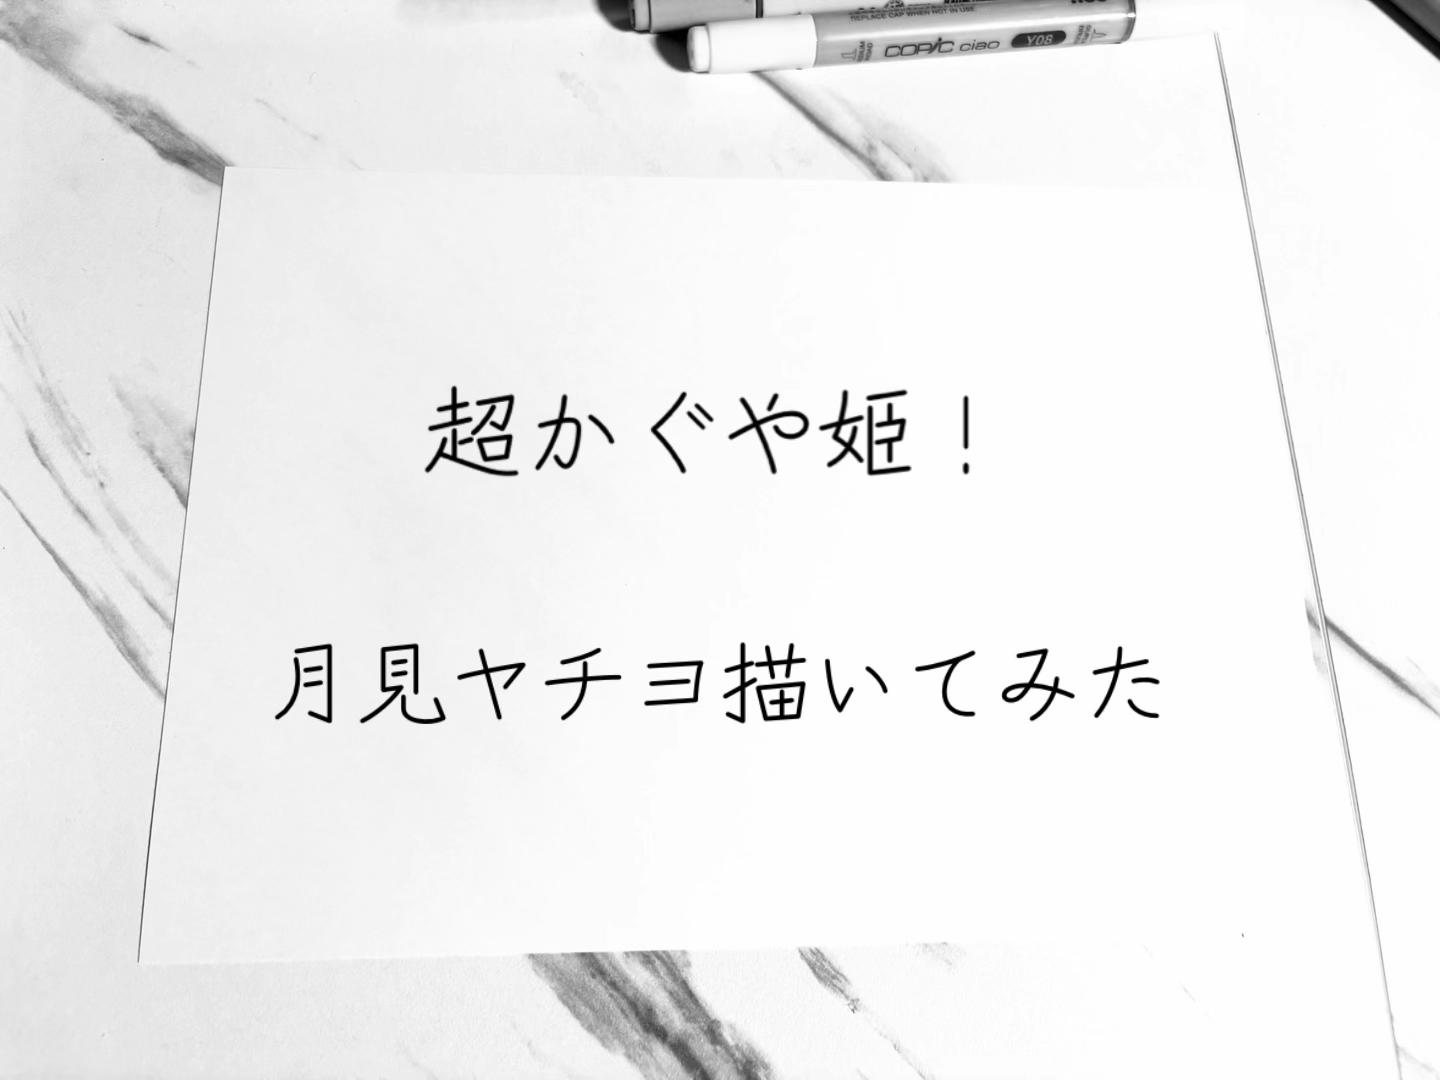 REPLACE CAP WHEN NOT IN USE
COPIC ciao Y08
超かぐや姫！
月見ヤチヨ描いてみた